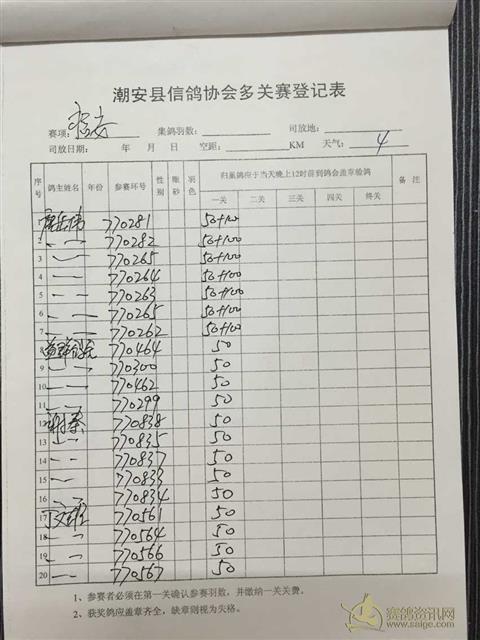 潮安县信鸽协会多关赛登记表
赛项: 集鸽羽数: 司放地:
司放日期: 年 月 日 空距: KM 天气: 4
序号 鸽主姓名 年份 参赛环号 性别 眼砂 羽色 归巢鸽应于当天晚上12时前到鸽会盖章验鸽 备注
一关 二关 三关 四关 终关
1 770281 50+100
2 770282 50+100
3 770265 50+100
4 770264 50+100
5 770263 50+100
6 770265 50+100
7 770262 50+100
8 770464 50
9 770300 50
10 770462 50
11 770299 50
12 770838 50
13 770835 50
14 770837 50
15 770833 50
16 770834 50
17 770561 50
18 770564 50
19 770566 50
20 770567 50
1、参赛者必须在第一关确认参赛羽数,并缴纳一关关费。
2、获奖鸽应盖章齐全,缺章则视为失格。
赛鸽资讯网
www.saige.com